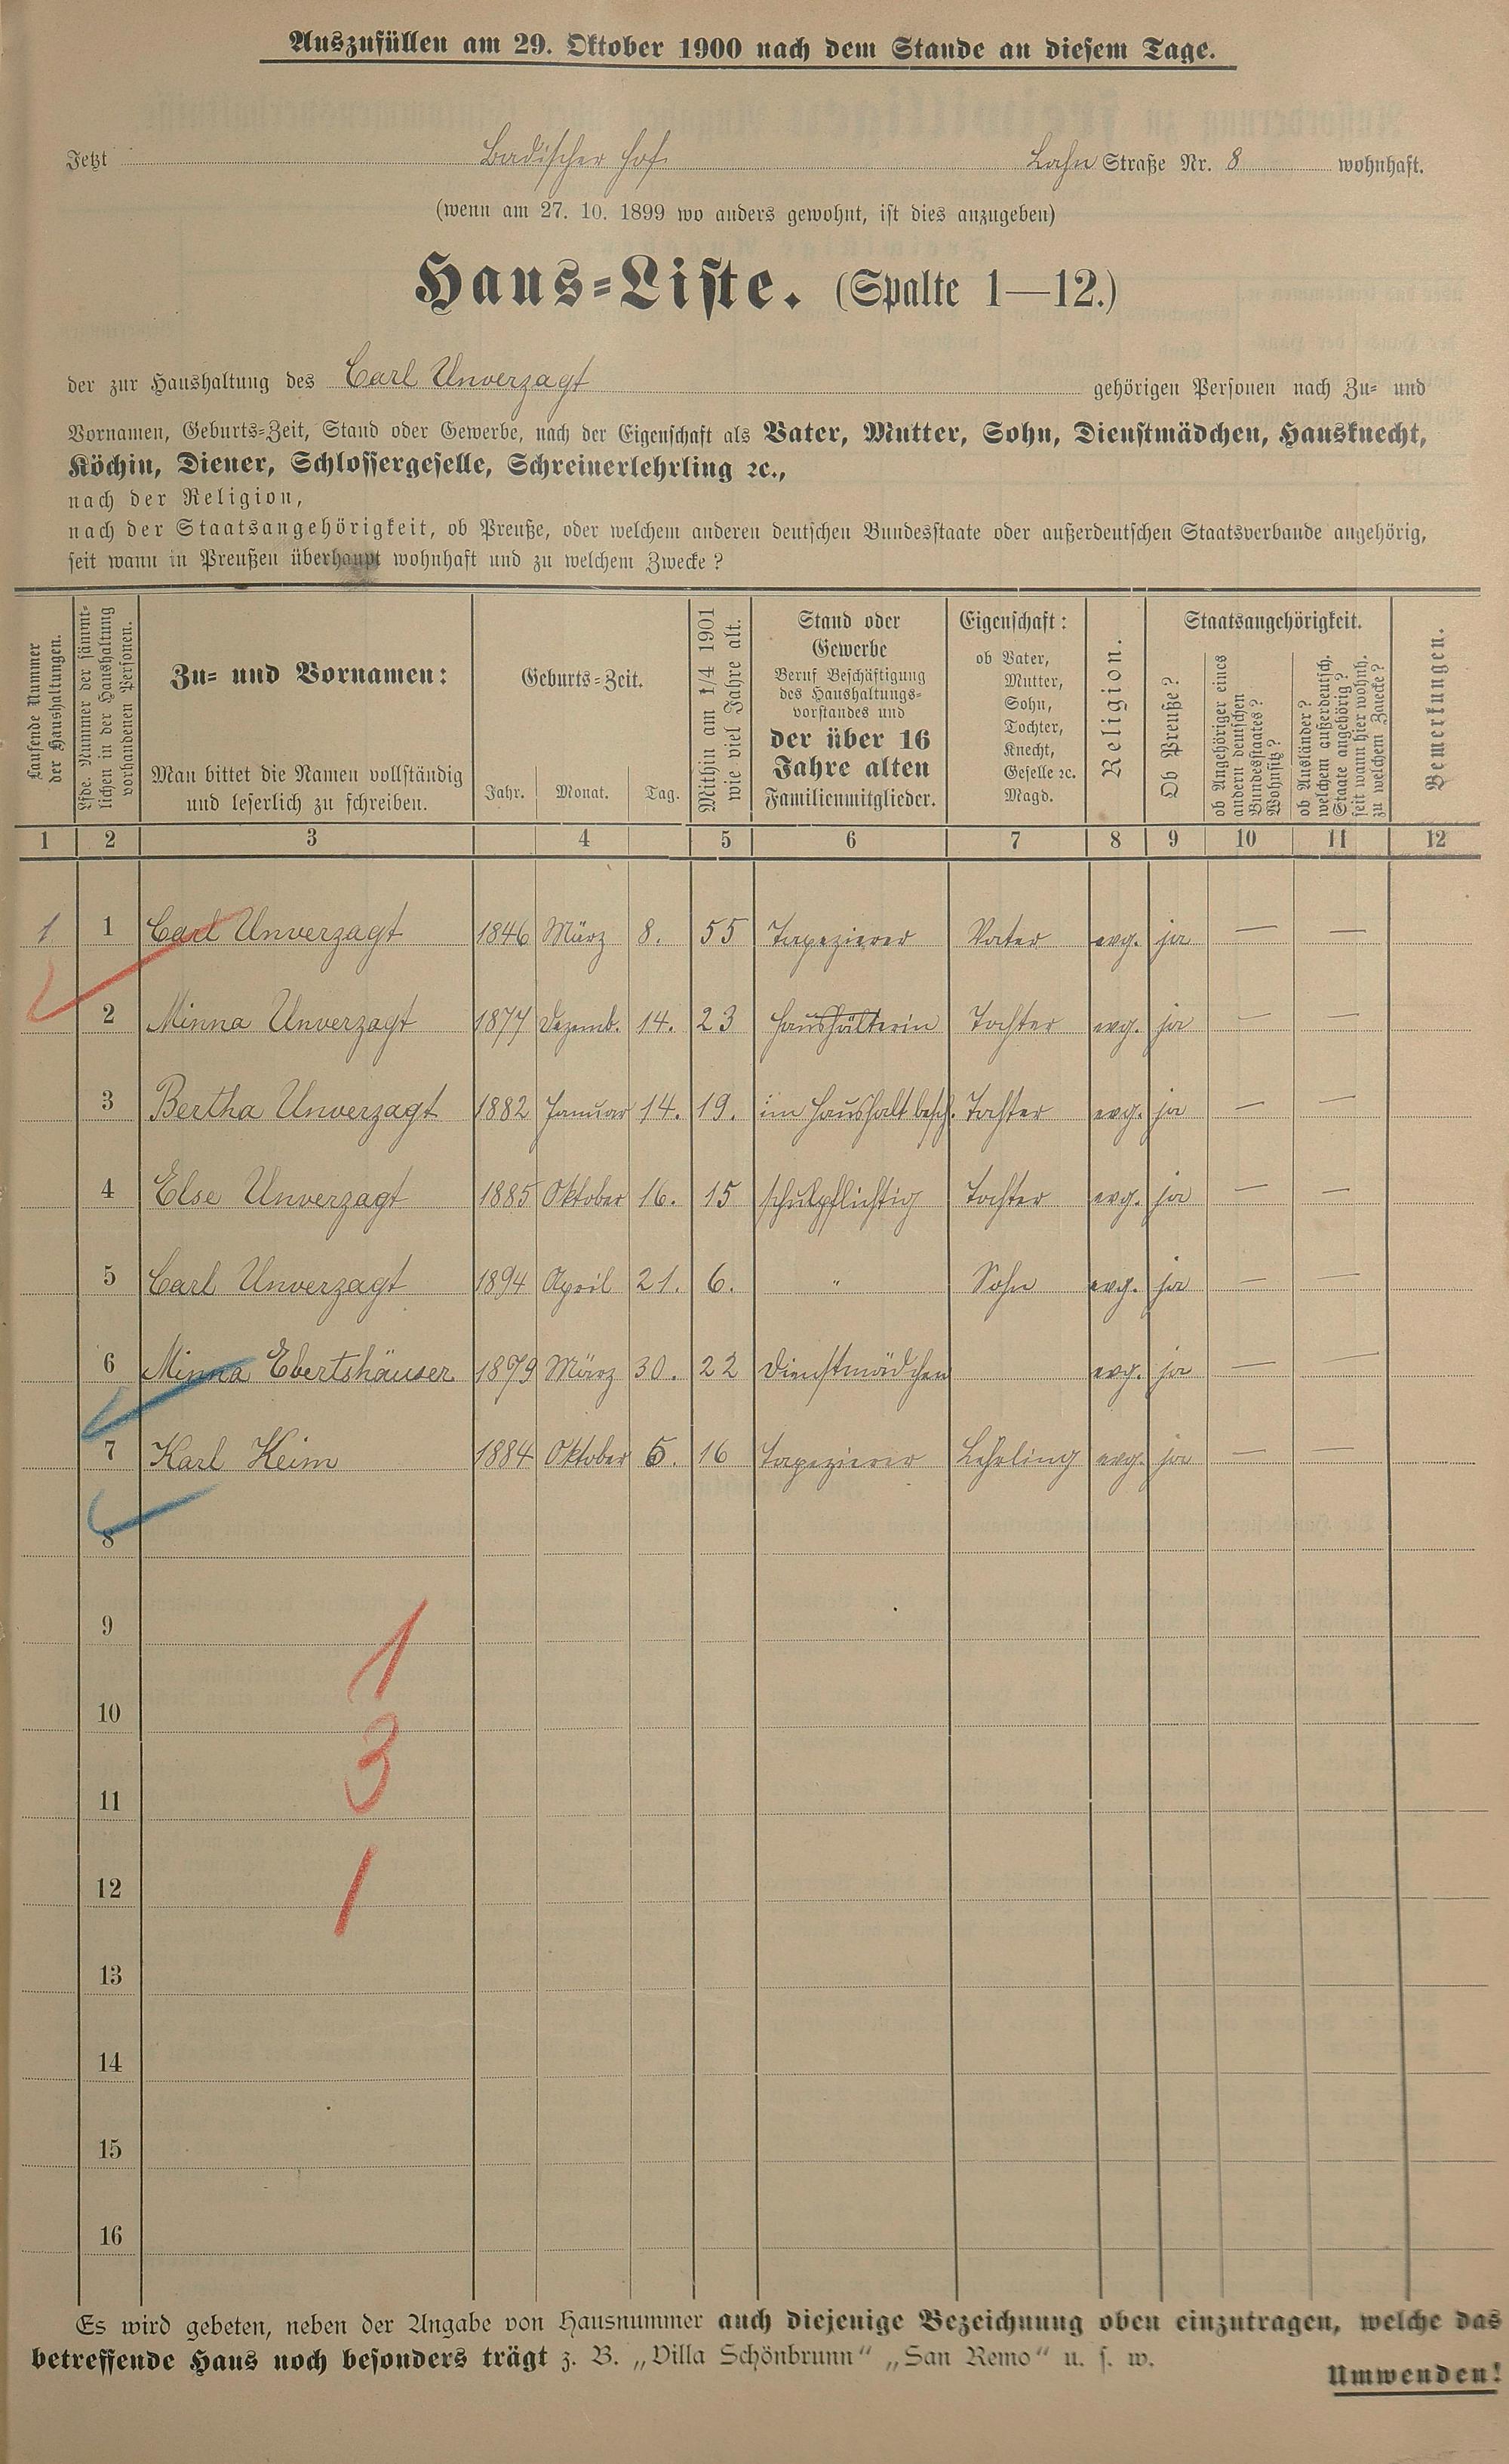 Auszufüllen am 29. Oktober 1900 nach dem Stande an diesem Tage.
Jetzt Badischer Hof Lahn Straße Nr. 8 wohnhaft.
(wenn am 27. 10. 1899 wo anders gewohnt, ist dies anzugeben)
Haus-Liste. (Spalte 1—12.)
der zur Haushaltung des Carl Unverzagt gehörigen Personen nach Zu- und
Vornamen, Geburts-Zeit, Stand oder Gewerbe, nach der Eigenschaft als Vater, Mutter, Sohn, Dienstmädchen, Hausknecht,
Köchin, Diener, Schlossergeselle, Schreinerlehrling ꝛc.,
nach der Religion,
nach der Staatsangehörigkeit, ob Preuße, oder welchem anderen deutschen Bundesstaate oder außerdeutschen Staatsverbande angehörig,
seit wann in Preußen überhaupt wohnhaft und zu welchem Zwecke?
Laufende Nummer
der Haushaltungen.
Lfde. Nummer der sämmt-
lichen in der Haushaltung
vorhandenen Personen.
Zu- und Vornamen:
Man bittet die Namen vollständig
und leserlich zu schreiben.
Geburts-Zeit.
Jahr. Monat. Tag.
Mithin am 1/4 1901
wie viel Jahre alt.
Stand oder
Gewerbe
Beruf Beschäftigung
des Haushaltungs-
vorstandes und
der über 16
Jahre alten
Familienmitglieder.
Eigenschaft:
ob Vater,
Mutter,
Sohn,
Tochter,
Knecht,
Geselle ꝛc.
Magd.
Religion.
Staatsangehörigkeit.
Ob Preuße?
ob Angehöriger eines
andern deutschen
Bundesstaates?
Wohnsitz?
ob Ausländer?
welchem außerdeutsch.
Staate angehörig?
seit wann hier wohnh.
zu welchem Zwecke?
Bemerkungen.
1 2 3 4 5 6 7 8 9 10 11 12
1 1 Carl Unverzagt 1846 März 8. 55 Tapezierer Vater evg. ja — —
2 Minna Unverzagt 1877 Dezemb. 14. 23 Haushälterin Tochter evg. ja — —
3 Bertha Unverzagt 1882 Januar 14. 19. im Haushalt besch. Tochter evg. ja — —
4 Else Unverzagt 1885 Oktober 16. 15 schulpflichtig Tochter evg. ja — —
5 Carl Unverzagt 1894 April 21. 6. " Sohn evg. ja — —
6 Minna Ebertshäuser 1879 März 30. 22 Dienstmädchen evg. ja — —
7 Karl Keim 1884 Oktober 5. 16 Tapezierer Lehrling evg. ja — —
8
9
1
10
3
11
12
1
13
14
15
16
Es wird gebeten, neben der Angabe von Hausnummer auch diejenige Bezeichnung oben einzutragen, welche das
betreffende Haus noch besonders trägt z. B. „Villa Schönbrunn“ „San Remo“ u. s. w.
Umwenden!